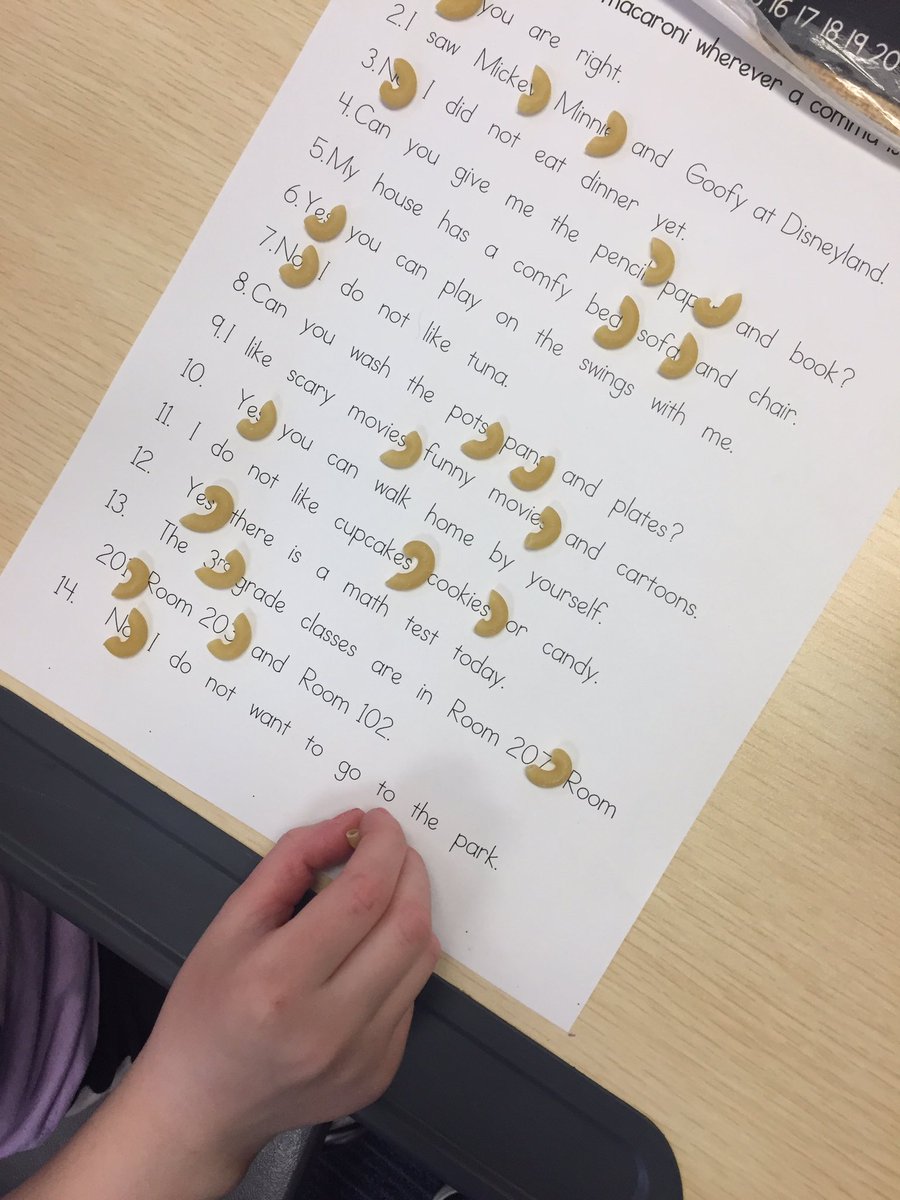 macaroni wherever a comma is
16 17 18 19 20
you are right.
2. I saw Mickey Minnie and Goofy at Disneyland.
3. No I did not eat dinner yet.
4. Can you give me the pencil paper and book?
5. My house has a comfy bed sofa and chair.
6. Yes you can play on the swings with me.
7. No I do not like tuna.
8. Can you wash the pots pans and plates?
9. I like scary movies funny movies and cartoons.
10. Yes you can walk home by yourself.
11. I do not like cupcakes cookies or candy.
12. Yes there is a math test today.
13. The 3rd grade classes are in Room 207 Room
201 Room 203 and Room 102.
14. No I do not want to go to the park.